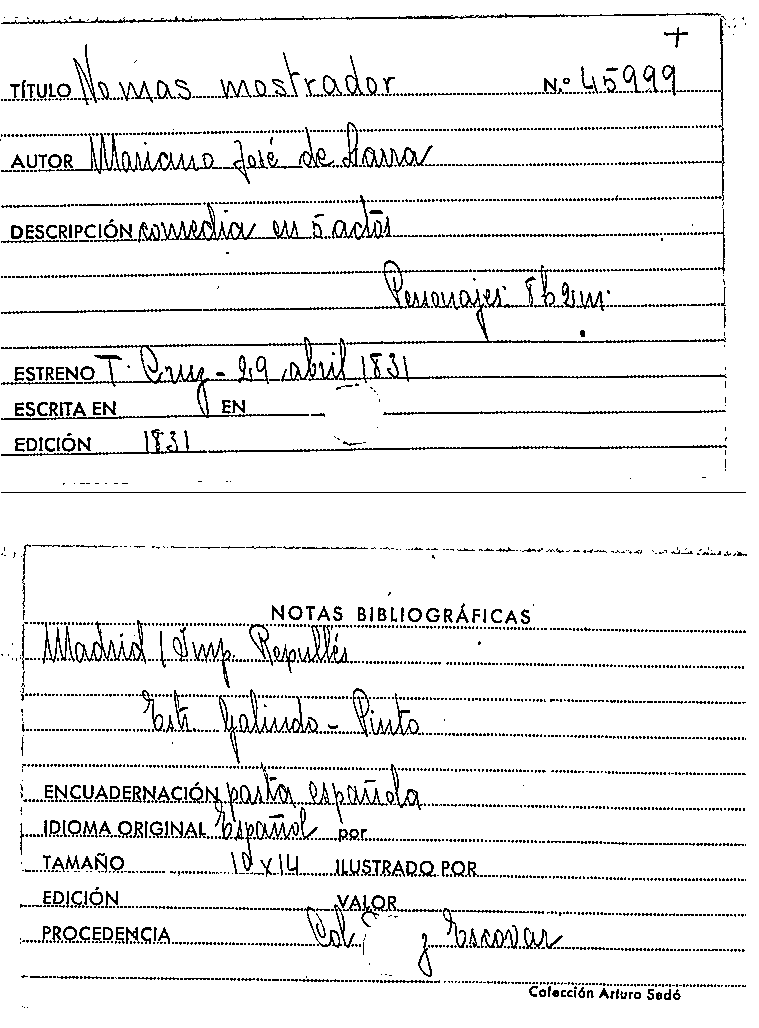 +
TÍTULO No mas mostrador N.º 45999
AUTOR Mariano José de Larra
DESCRIPCIÓN comedia en 5 actos
Personajes: 8h 2m.
ESTRENO T. Cruz - 29 abril 1831
ESCRITA EN EN
EDICIÓN 1831
NOTAS BIBLIOGRÁFICAS
Madrid / Imp. Repullés
Estr. Galindo - Pinto
ENCUADERNACIÓN pasta española
IDIOMA ORIGINAL Español por
TAMAÑO 10 x 14 ILUSTRADO POR
EDICIÓN VALOR
PROCEDENCIA Col. y Escovar
Colección Arturo Sedó